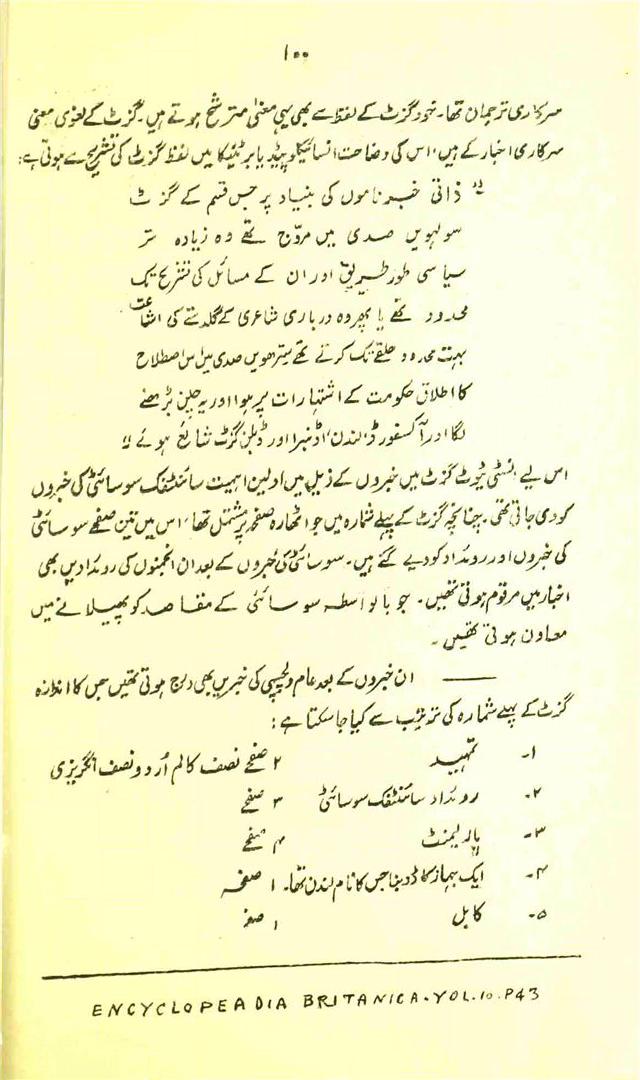 ۱۰۰
سرکاری ترجمان تھا۔ خود گزٹ کے لفظ سے بھی یہی معنیٰ مترشح ہوتے ہیں۔ گزٹ کے لغوی معنی
سرکاری اخبار کے ہیں، اس کی وضاحت انسائیکلوپیڈیا برٹنیکا میں لفظ گزٹ کی تشریح سے ہوتی ہے:
"ذاتی خبرناموں کی بنیاد پر جس قسم کے گزٹ
سولہویں صدی میں مروّج تھے وہ زیادہ تر
سیاسی طور طریق اور ان کے مسائل کی تشریح تک
محدود تھے یا پھر وہ درباری شاعری کے گلدستے کی اشاعت
بہت محدود حلقے تک کرتے تھے سترھویں صدی میں اس اصطلاح
کا اطلاق حکومت کے اشتہارات پر ہوا اور یہ چلن بڑھنے
لگا اور آکسفورڈ، لندن، اڈنبرا اور ڈبلن گزٹ شائع ہوئے"
اس لیے انسٹی ٹیوٹ گزٹ میں خبروں کے ذیل میں اولین اہمیت سائنٹفک سوسائٹی کی خبروں
کو دی جاتی تھی۔ چنانچہ گزٹ کے پہلے شمارہ میں جو اٹھارہ صفحہ پر مشتمل تھا، اس میں تین صفحے سوسائٹی
کی خبروں اور روئداد کو دیے گئے ہیں۔ سوسائٹی کی خبروں کے بعد ان انجمنوں کی روئدادیں بھی
اخبار میں مرقوم ہوتی تھیں۔ جو بالواسطہ سوسائٹی کے مقاصد کو پھیلانے میں
معاون ہوتی تھیں۔
ان خبروں کے بعد عام دلچسپی کی خبریں بھی درج ہوتی تھیں جس کا اندازہ
گزٹ کے پہلے شمارہ کی ترتیب سے کیا جا سکتا ہے:
۱۔ تمہید ۲ صفحے نصف کالم اُردو نصف انگریزی
۲۔ روئداد سائنٹفک سوسائٹی ۳ صفحے
۳۔ پارلیمنٹ ۴ صفحے
۴۔ ایک جہاز کا ڈوبنا جس کا نام لندن تھا۔ ۱ صفحہ
۵۔ کابل ۱ صفحہ
ENCYCLOPEADIA BRITANICA. VOL. 10. P43